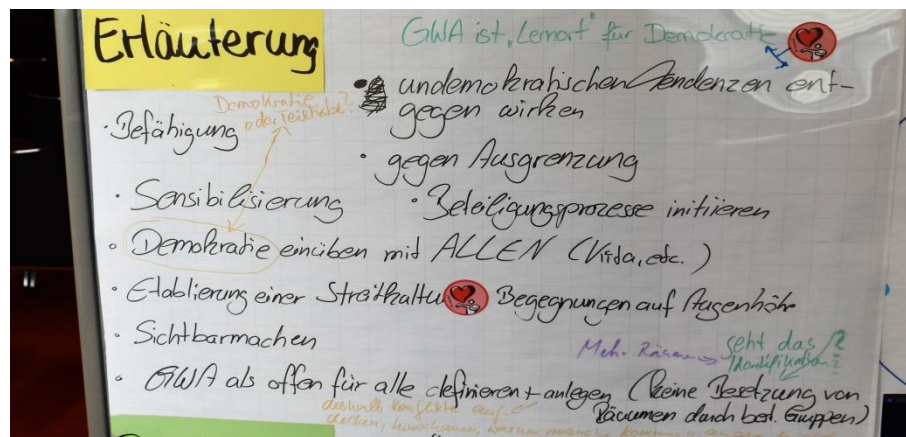 Erläuterung
GWA ist „Lernort" für Demokratie
• undemokratischen Tendenzen ent-
gegen wirken
Demokratie
oder Teilhabe?
• Befähigung
• gegen Ausgrenzung
• Sensibilisierung
• Beteiligungsprozesse initiieren
• Demokratie einüben mit ALLEN (Kita, etc.)
• Etablierung einer Streitkultur
Begegnungen auf Augenhöhe
• Sichtbarmachen
Mehr Räume →
geht das?
Identifikation?
• GWA als offen für alle definieren + anlegen (keine Besetzung von
Räumen durch best. Gruppen)
deshalb Konflikte auf-
decken, hinschauen, warum manche kommen